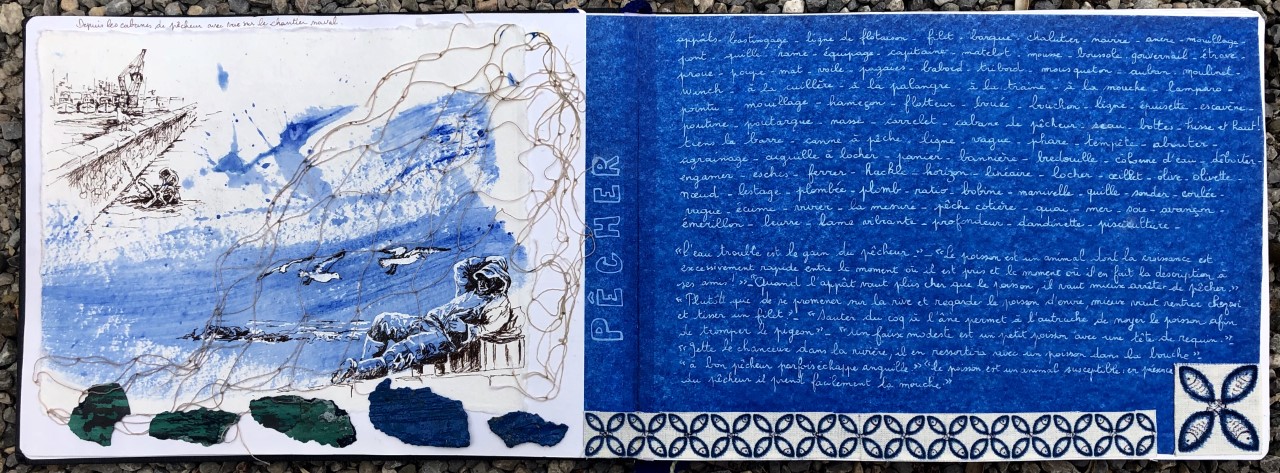 Depuis les cabanes de pêcheur avec vue sur le chantier naval.
PÊCHER
appâts - bastingage - ligne de flotaison - filet - barque - chalutier - navire - ancre - mouillage -
pont - quille - rame - équipage - capitaine - matelot - mousse - boussole - gouvernail - étrave -
proue - poupe - mat - voile - pagaies - babord - tribord - mousqueton - auban - moulinet -
Winch - à la cuillère - à la palangre - à la traine - à la mouche - lamparo -
pointu - mouillage - hameçon - flotteur - bouée - bouchon - ligne - épuisette - escavène -
poutine - poutargue - nasse - carrelet - cabane de pêcheur - seau - bottes - hisse et haut!
tiens la barre - canne à pêche - ligne - vague - phare - tempête - abouter -
agrainage - aiguille à locher - panier - bannière - bredouille - colonne d'eau - déboiter -
engamer - eschis - ferrer - hackle - horizon - linéaire - locher - œillet - olive - olivette -
nœud - lestage - plombée - plomb - ratio - bobine - manivelle - quille - sonder - coulée -
vague - écume - virer - la mesure - pêche côtière - quai - mer - soie - avançon -
émerillon - leurre - lame vibrante - profondeur - dandinette - pisciculture -
"L'eau trouble est le gain du pêcheur." - "Le poisson est un animal dont la croissance est
excessivement rapide entre le moment où il est pris et le moment où il en fait la description à
ses amis!" - "Quand l'appât vaut plus cher que le poisson, il vaut mieux arrêter de pêcher."
"Plutôt que de se promener sur la rive et regarde le poisson d'envie mieux vaut rentrer chez soi
et tisser un filet"! "Sauter du coq à l'âne permet à l'autruche de noyer le poisson afin
de tromper le pigeon" - "Un faux modeste est un petit poisson avec une tête de requin."
"Jette le chanceux dans la rivière, il en ressortira avec un poisson dans la bouche"
"à bon pêcheur parfois échappe anguille" "le poisson est un animal susceptible: en présence
du pêcheur il prend facilement la mouche."